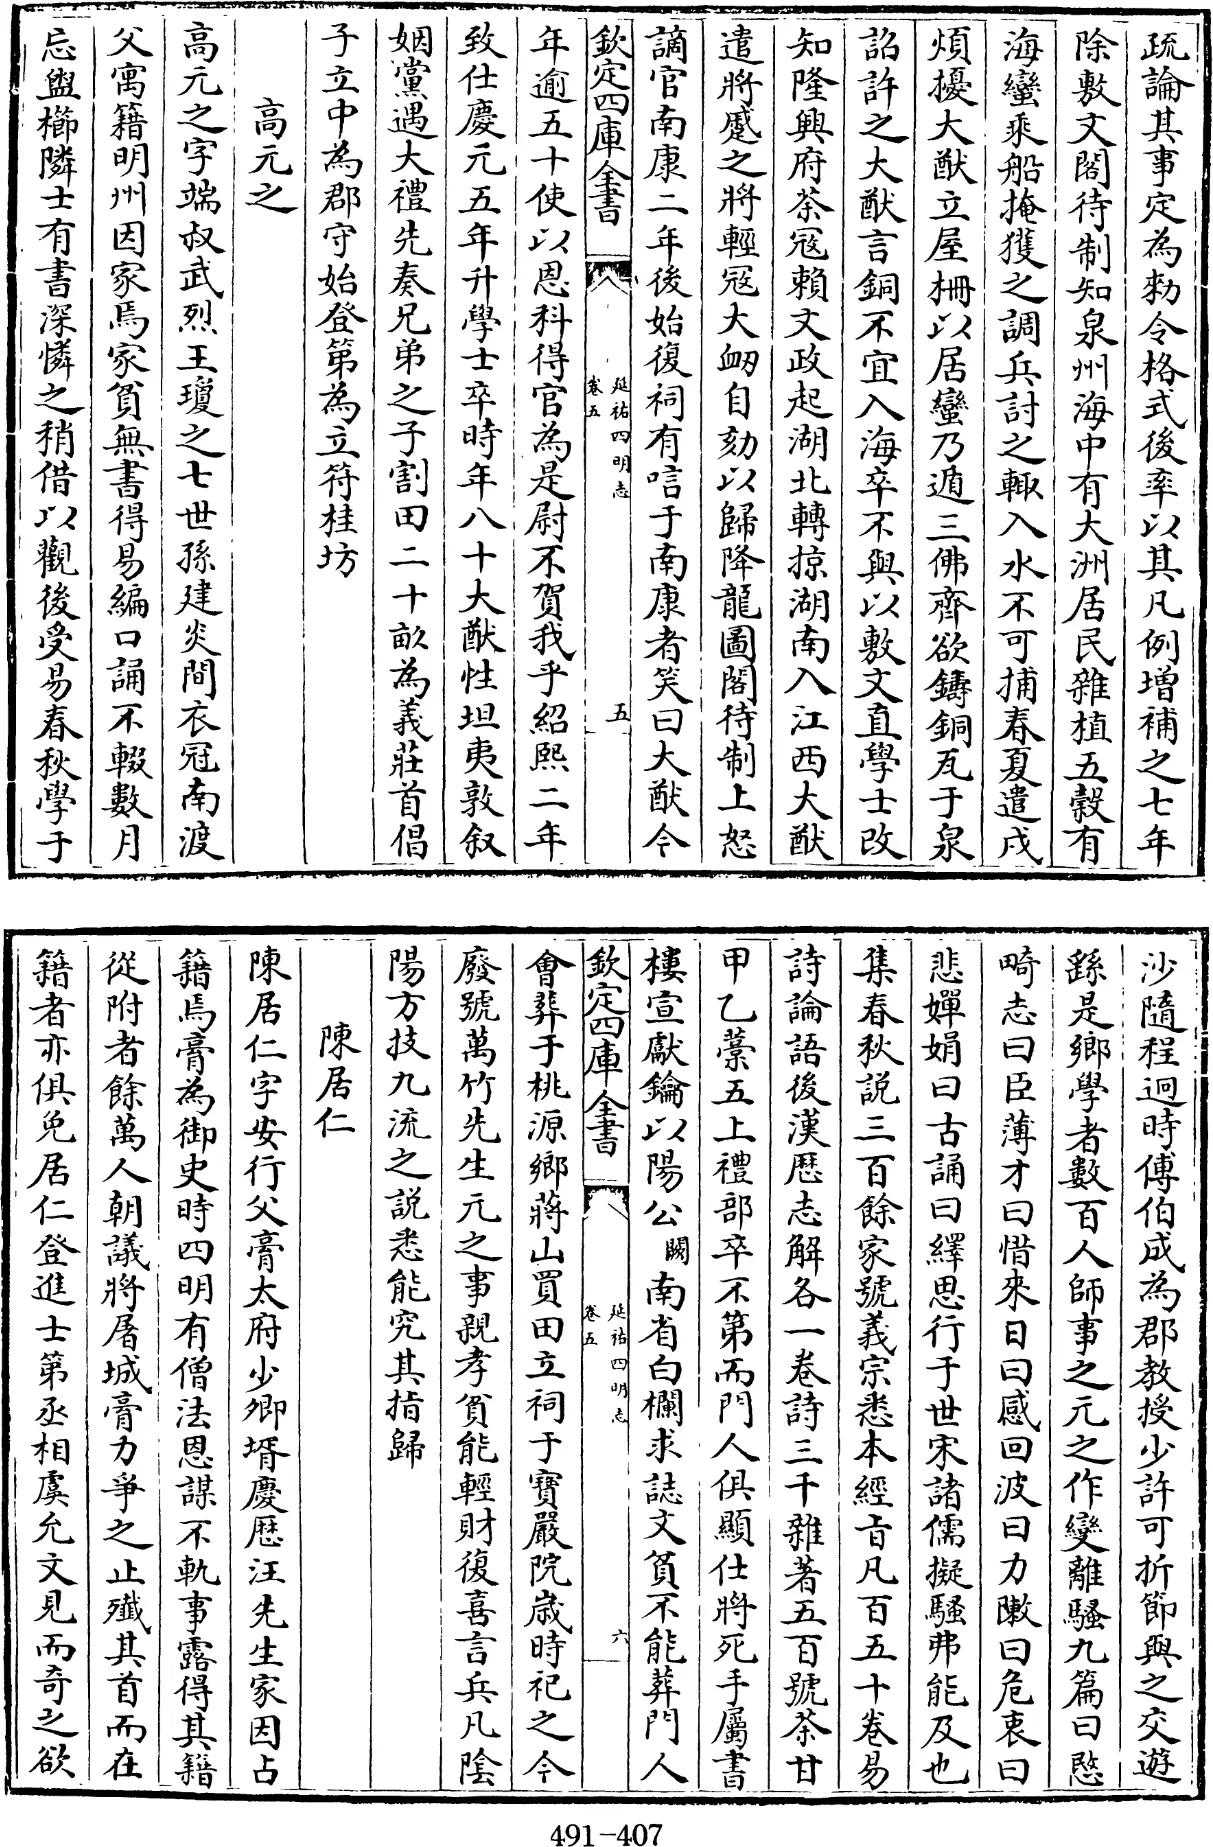 疏論其事定為勅令格式後率以其凡例增補之七年
除敷文閣待制知泉州海中有大洲居民雜植五穀有
海蠻乘船掩獲之調兵討之輙入水不可捕春夏遣戍
煩擾大猷立屋柵以居蠻乃遁三佛齊欲鑄銅瓦于泉
詔許之大猷言銅不宜入海卒不與以敷文直學士改
知隆興府茶冦賴文政起湖北轉掠湖南入江西大猷
遣將蹙之將輕冦大衂自劾以歸降龍圖閣待制上怒
謫官南康二年後始復祠有唁于南康者笑曰大猷今
欽定四庫全書
延祐四明志
卷五
五
年逾五十使以恩科得官為是尉不賀我乎紹熙二年
致仕慶元五年升學士卒時年八十大猷性坦夷敦叙
姻黨遇大禮先奏兄弟之子割田二十畝為義莊首倡
子立中為郡守始登第為立符桂坊
高元之
高元之字端叔武烈王瓊之七世孫建炎間衣冠南渡
父寓籍明州因家焉家貧無書得易編口誦不輟數月
忘盥櫛隣士有書深憐之稍借以觀後受易春秋學于
沙隨程迥時傅伯成為郡教授少許可折節與之交遊
繇是鄉學者數百人師事之元之作變離騷九篇曰愍
畸志曰臣薄才曰惜來日曰感回波曰力陳曰危衷曰
悲嬋娟曰古誦曰繹思行于世宋諸儒擬騷弗能及也
集春秋説三百餘家號義宗悉本經㫖凡百五十卷易
詩論語後漢厯志解各一卷詩三千雜著五百號茶甘
甲乙藁五上禮部卒不第而門人俱顯仕將死手屬書
樓宣獻鑰以陽公闕南省白欄求誌文貧不能葬門人
欽定四庫全書
延祐四明志
卷五
六
會葬于桃源鄉蔣山買田立祠于寶嚴院歲時祀之今
廢號萬竹先生元之事親孝貧能輕財復喜言兵凡陰
陽方技九流之説悉能究其指歸
陳居仁
陳居仁字安行父膏太府少卿壻慶厯汪先生家因占
籍焉膏為御史時四明有僧法恩謀不軌事露得其籍
從附者餘萬人朝議將屠城膏力爭之止殱其首而在
籍者亦俱免居仁登進士第丞相虞允文見而奇之欲
491-407